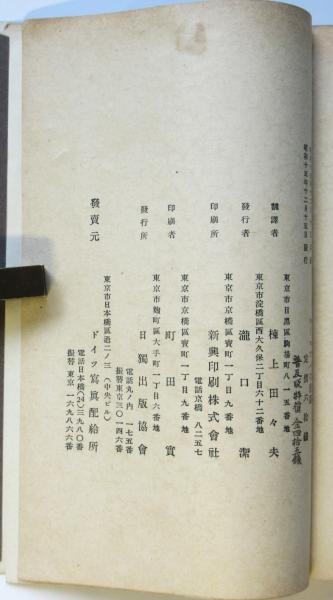 昭和十五年十二月十五日發行
普及版 特價 金四拾五錢
東京市目黑區駒場町八一五番地
翻譯者 棟上田々夫
東京市淀橋區西大久保二丁目六十二番地
發行者 瀧口潔
東京市京橋區寶町一丁目九番地
印刷所 新興印刷株式會社
電話京橋 八二五七
東京市京橋區寶町一丁目九番地
印刷者 町田實
東京市麴町區大手町一丁目六番地
發行所 日獨出版協會
電話丸ノ內 一七五番
振替東京三〇一四六番
東京市日本橋區通二ノ三 (中央ビル)
發賣元 ドイツ寫眞配給所
電話日本橋(24)三九八〇番
振替 東京 一六九八六六番